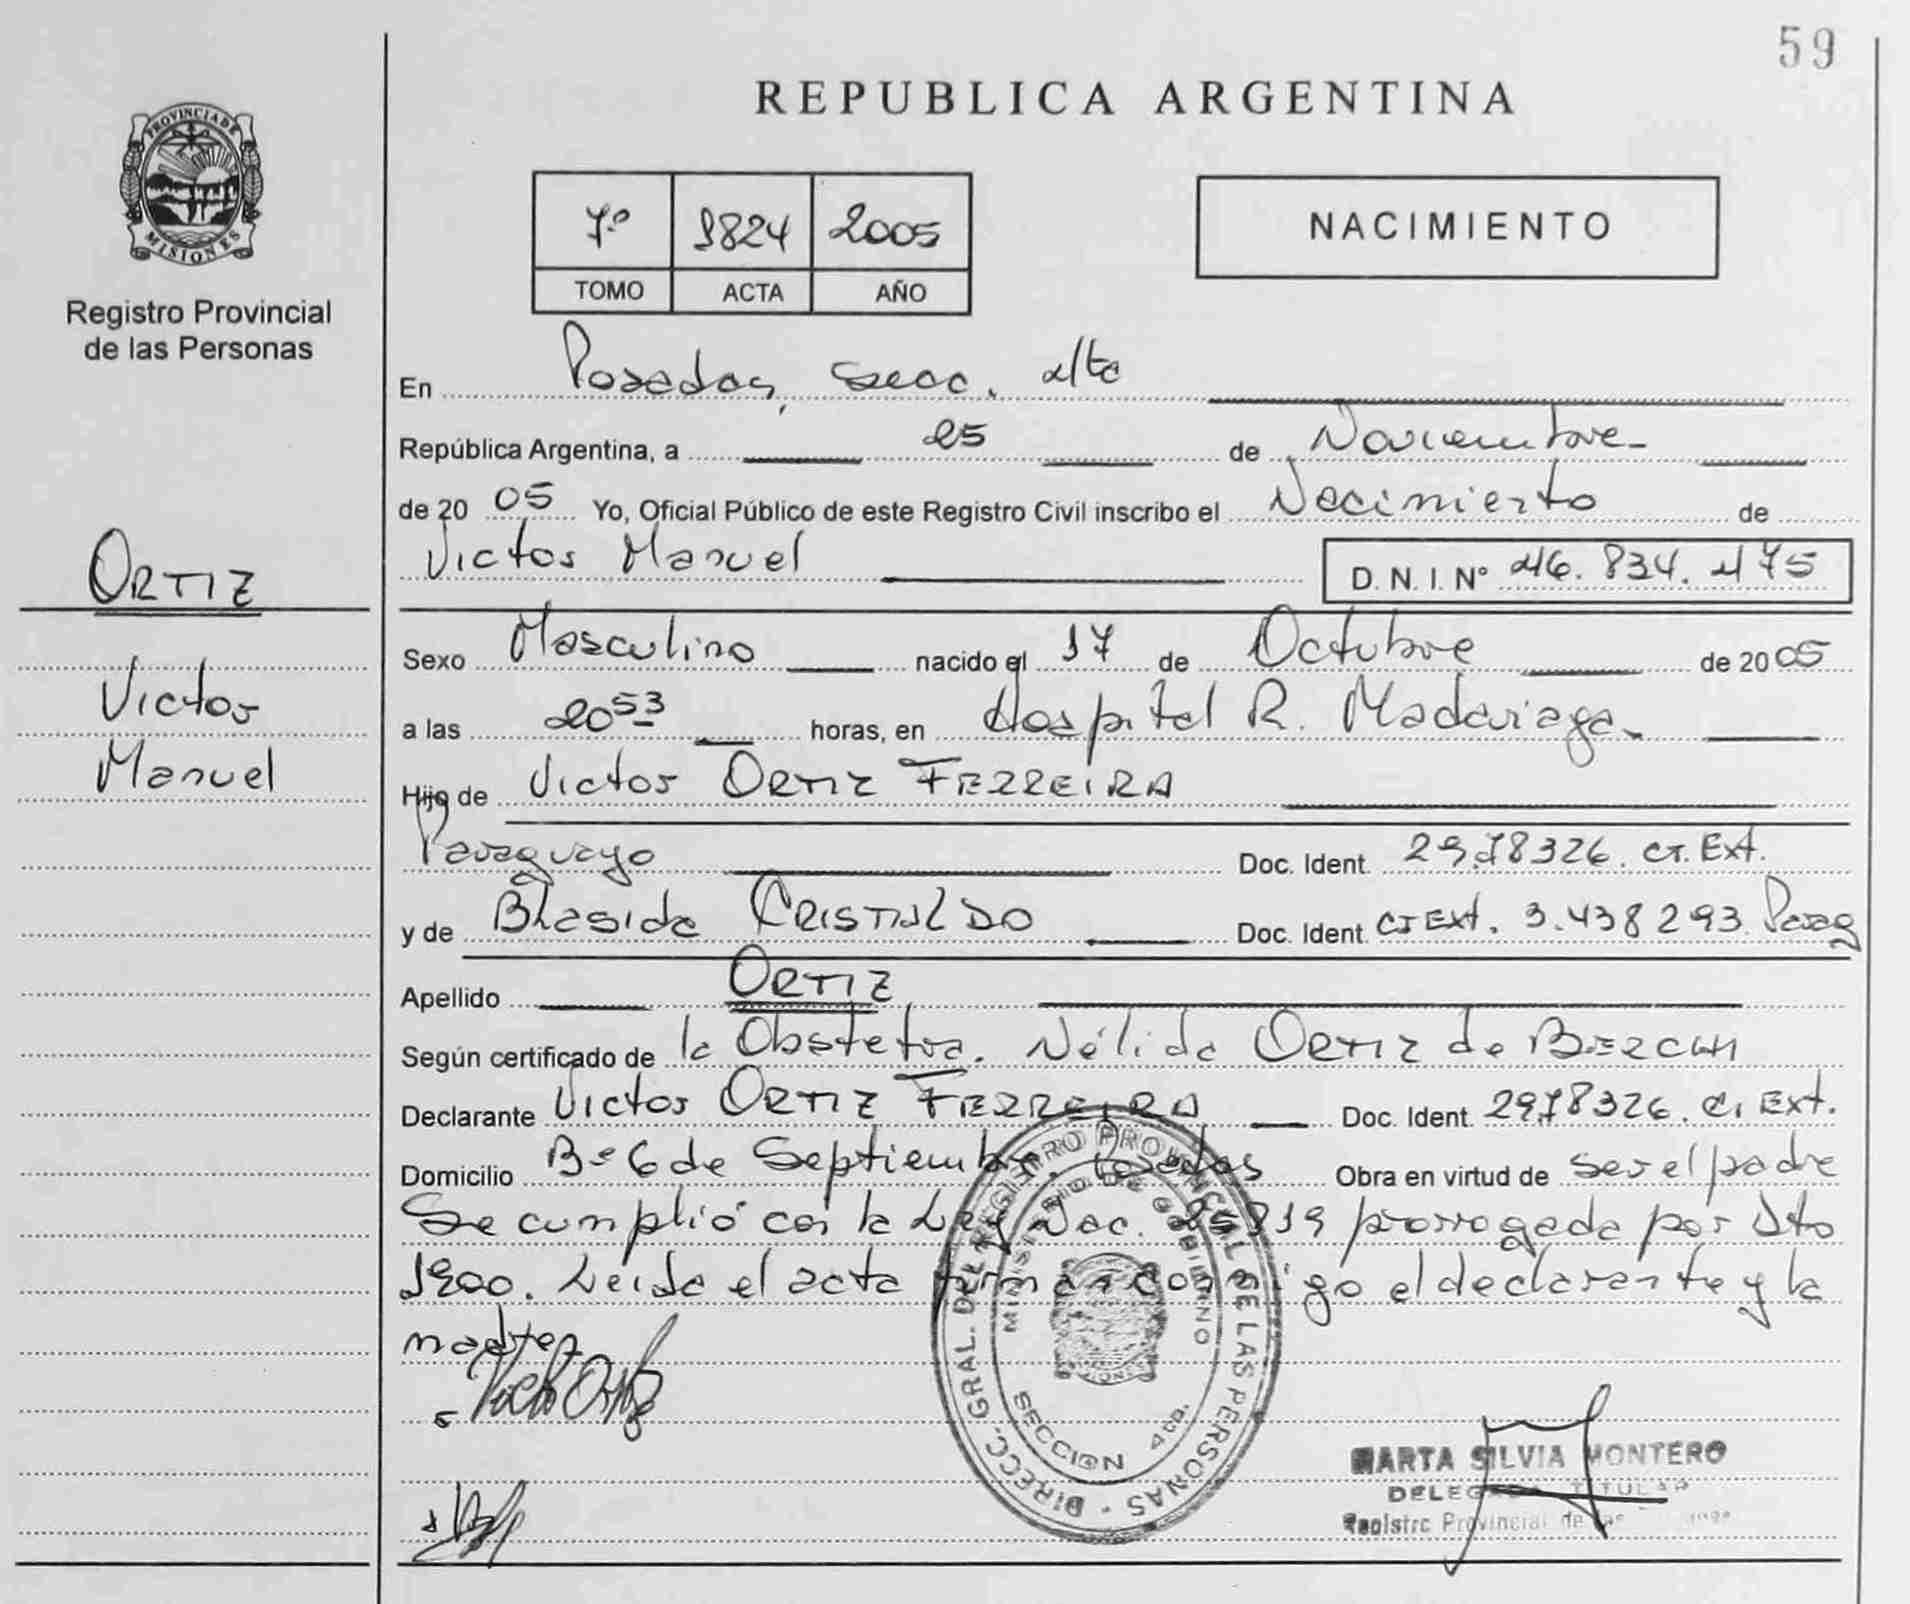 59
REPUBLICA ARGENTINA
PROVINCIA DE
MISIONES
Registro Provincial
de las Personas
7º 1824 2005
TOMO ACTA AÑO
NACIMIENTO
En Posadas, Secc. 4ta
República Argentina, a 25 de Noviembre
de 2005 Yo, Oficial Público de este Registro Civil inscribo el Nacimiento de
Victor Manuel D. N. I. Nº 46.834.475
ORTIZ
Victor
Manuel
Sexo Masculino nacido el 17 de Octubre de 2005
a las 20 53 horas, en Hospital R. Madariaga.
Hijo de Victor ORTIZ FERREIRA
Paraguayo Doc. Ident. 2978326. CI. Ext.
y de Blasida CRISTALDO Doc. Ident. CI Ext. 3.438293 Parag
Apellido ORTIZ
Según certificado de la Obstetra. Nélida ORTIZ de
Declarante Victor ORTIZ FERREIRA Doc. Ident. 2978326. CI. Ext.
Domicilio Bº 6 de Septiembre. Posadas Obra en virtud de ser el padre
Se cumplió con la Ley Nac. 25819 prorrogada por Dto
1900. Leida el acta firman conmigo el declarante y la
madre
DIRECC. GRAL. DEL REGISTRO PROVINCIAL DE LAS PERSONAS
MINISTERIO DE GOBIERNO
SECCION 4ta.
MARTA SILVIA MONTERO
DELEGADA TITULAR
Registro Provincial de las